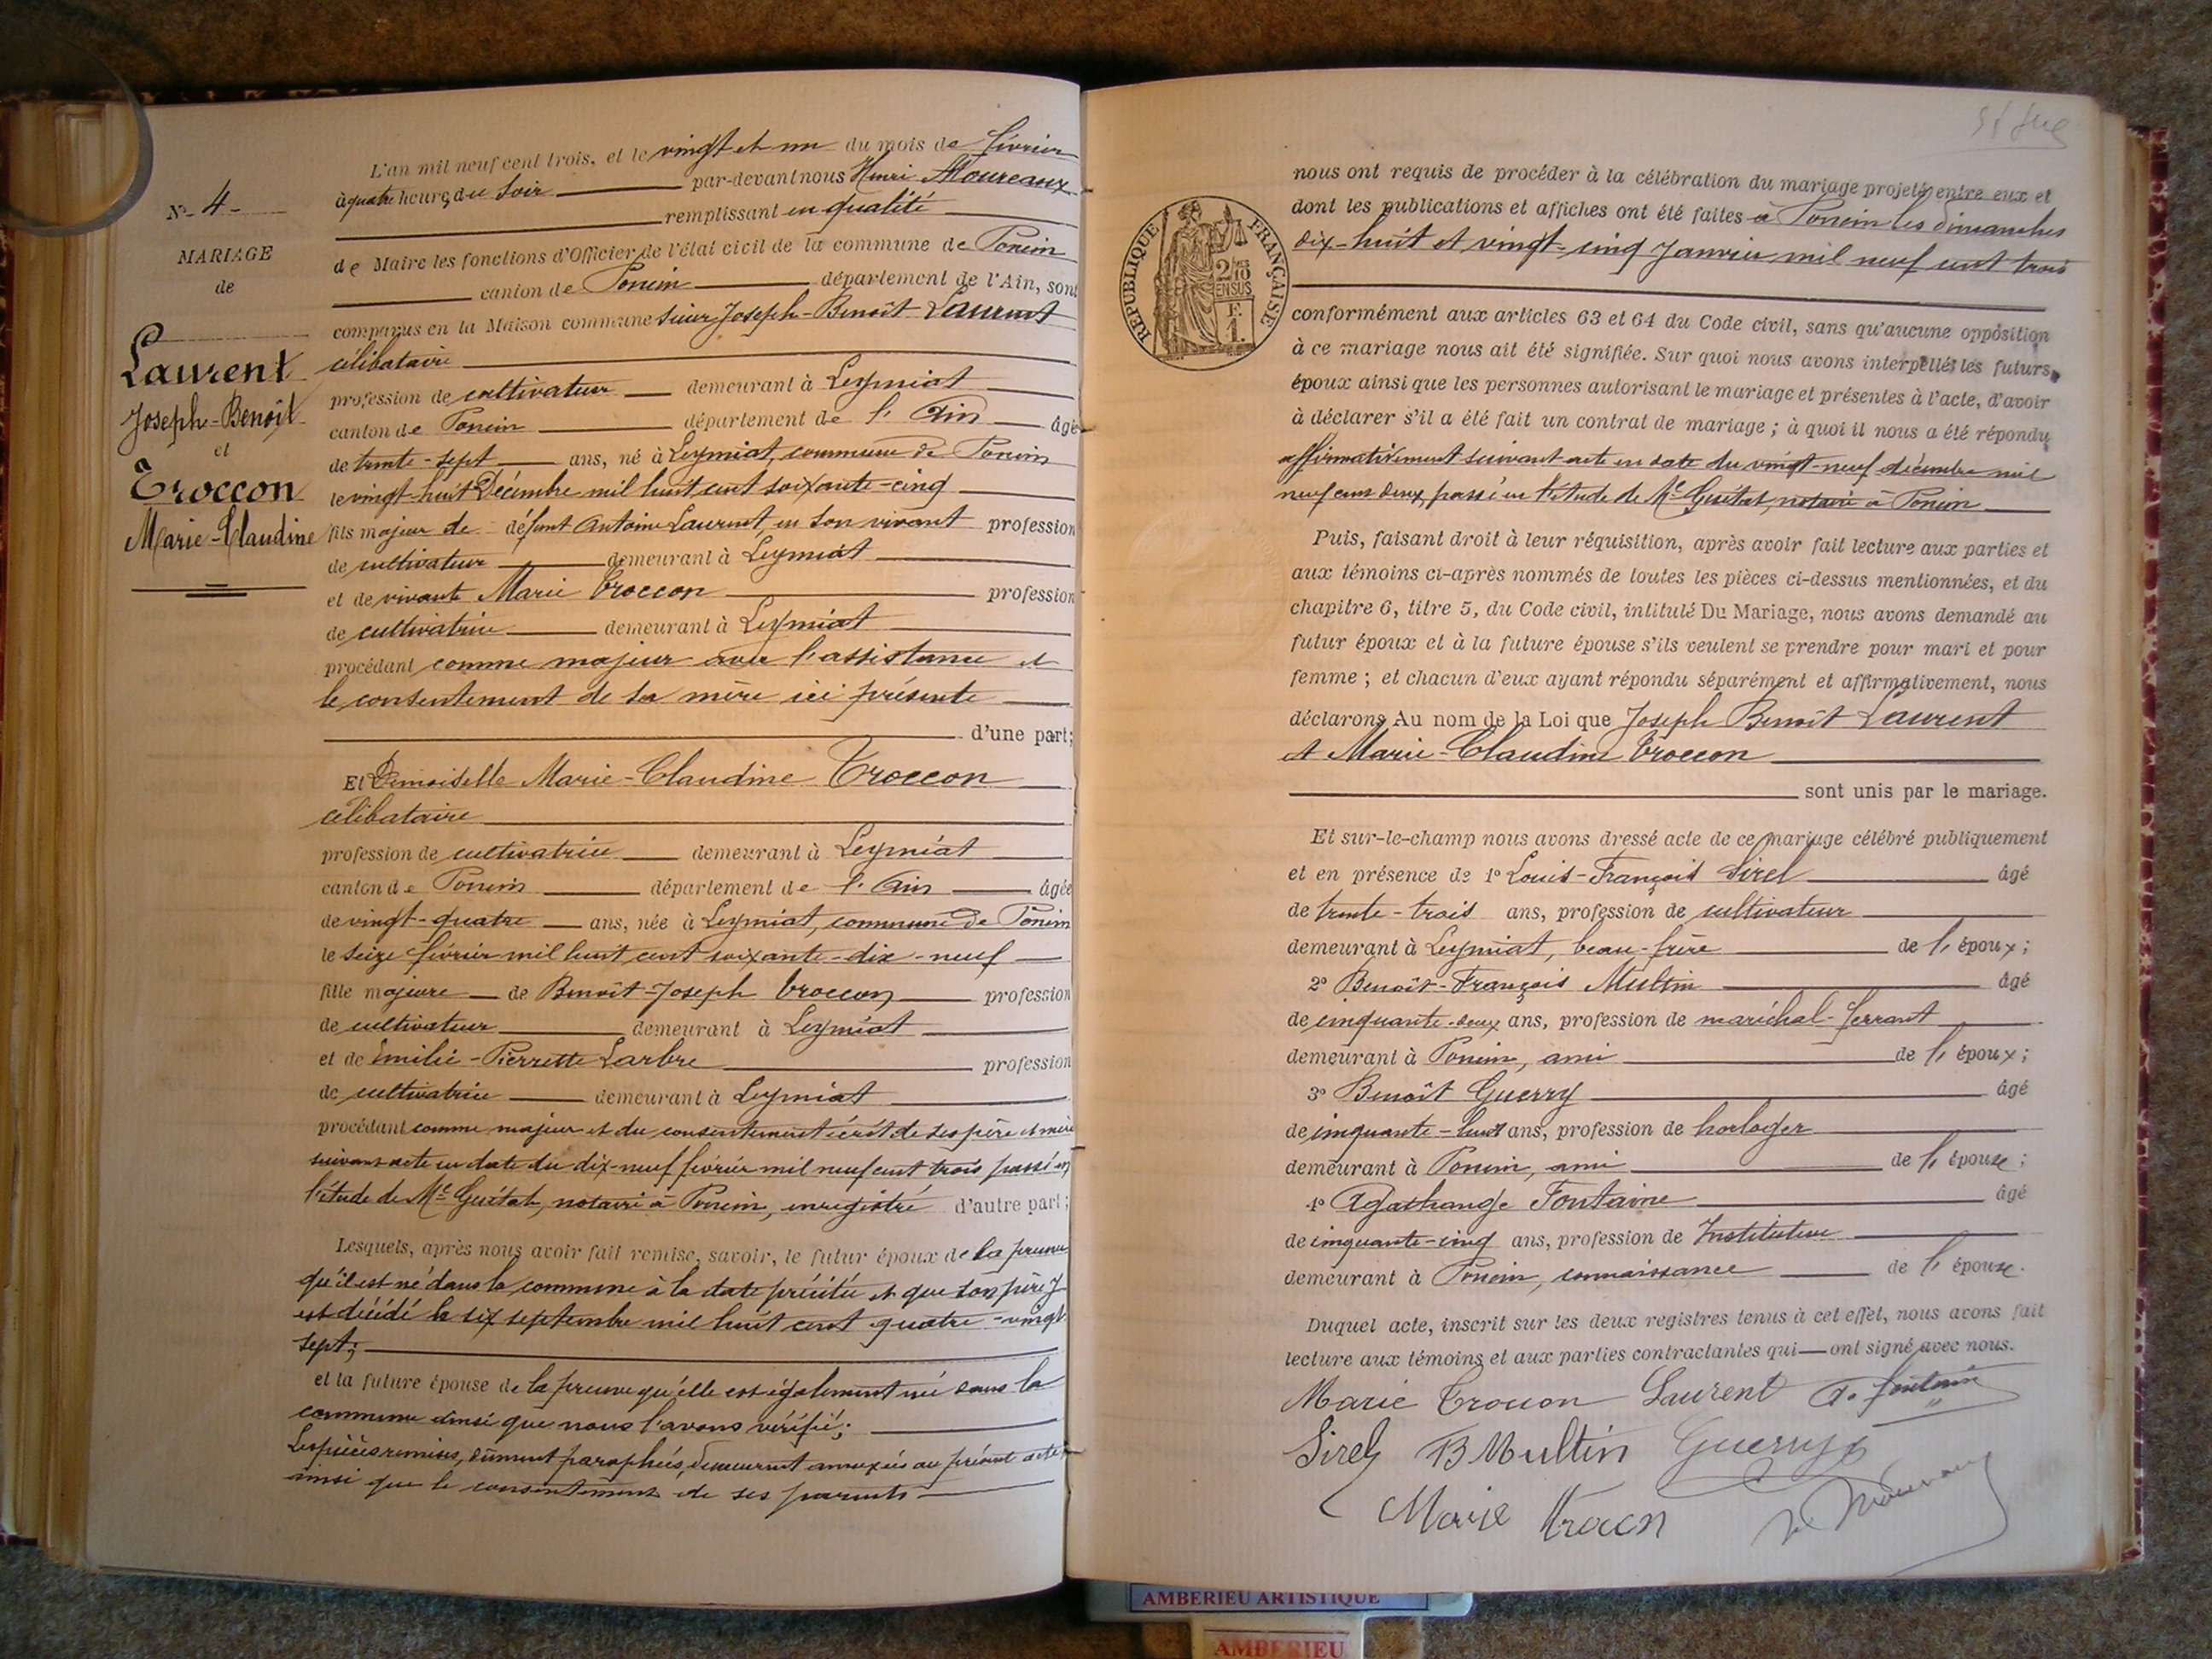 N° 4
MARIAGE
de
Laurent
Joseph-Benoît
et
Troccon
Marie-Claudine
L'an mil neuf cent trois, et le vingt et un du mois de février
à quatre heures du soir par-devant nous Henri Moureaux
remplissant en qualité
de Maire les fonctions d'Officier de l'état civil de la commune de Poncin
canton de Poncin département de l'Ain, sont
comparus en la Maison commune sieur Joseph-Benoît Laurent
célibataire
profession de cultivateur demeurant à Leymiat
canton de Poncin département de l'Ain âgé
de trente-sept ans, né à Leymiat, commune de Poncin
le vingt-huit Décembre mil huit cent soixante-cinq
fils majeur de défunt Antoine Laurent, en son vivant profession
de cultivateur demeurant à Leymiat
et de vivante Marie Troccon profession
de cultivatrice demeurant à Leymiat
procédant comme majeur avec l'assistance et
le consentement de sa mère ici présente
d'une part;
Et Demoiselle Marie-Claudine Troccon
célibataire
profession de cultivatrice demeurant à Leymiat
canton de Poncin département de l'Ain âgée
de vingt-quatre ans, née à Leymiat, commune de Poncin
le seize février mil huit cent soixante-dix-neuf
fille majeure de Benoît-Joseph Troccon profession
de cultivateur demeurant à Leymiat
et de Emilie-Pierrette Larbre profession
de cultivatrice demeurant à Leymiat
procédant comme majeur et du consentement écrit de ses père et mère
suivant acte en date du dix-neuf février mil neuf cent trois passé en
l'étude de Me Guétat, notaire à Poncin, enregistré d'autre part;
Lesquels, après nous avoir fait remise, savoir, le futur époux de la preuve
qu'il est né dans la commune à la date précitée et que son père y
est décédé le six septembre mil huit cent quatre-vingt
sept;
et la future épouse de la preuve qu'elle est également née dans la
commune ainsi que nous l'avons vérifié;
Les pièces remises, dûment paraphées, demeurent annexées au présent acte
ainsi que le consentement de ses parents
nous ont requis de procéder à la célébration du mariage projeté entre eux et
dont les publications et affiches ont été faites à Poncin les dimanches
dix-huit et vingt-cinq Janvier mil neuf cent trois
RÉPUBLIQUE FRANÇAISE
2/10
EN SUS
F.
1.
conformément aux articles 63 et 64 du Code civil, sans qu'aucune opposition
à ce mariage nous ait été signifiée. Sur quoi nous avons interpellés les futurs
époux ainsi que les personnes autorisant le mariage et présentes à l'acte, d'avoir
à déclarer s'il a été fait un contrat de mariage; à quoi il nous a été répondu
affirmativement suivant acte en date du vingt-neuf décembre mil
neuf cent deux, passé en l'étude de Me Guétat, notaire à Poncin
Puis, faisant droit à leur réquisition, après avoir fait lecture aux parties et
aux témoins ci-après nommés de toutes les pièces ci-dessus mentionnées, et du
chapitre 6, titre 5, du Code civil, intitulé Du Mariage, nous avons demandé au
futur époux et à la future épouse s'ils veulent se prendre pour mari et pour
femme; et chacun d'eux ayant répondu séparément et affirmativement, nous
déclarons Au nom de la Loi que Joseph Benoît Laurent
et Marie-Claudine Troccon
sont unis par le mariage.
Et sur-le-champ nous avons dressé acte de ce mariage célébré publiquement
et en présence de 1° Louis-François Sirel âgé
de trente-trois ans, profession de cultivateur
demeurant à Leymiat, beau-frère de l'époux;
2° Benoît-François Multin âgé
de cinquante-deux ans, profession de maréchal-ferrant
demeurant à Poncin, ami de l'époux;
3° Benoît Guerry âgé
de cinquante-huit ans, profession de horloger
demeurant à Poncin, ami de l'épouse;
4° Agathange Fontaine âgé
de cinquante-cinq ans, profession de Instituteur
demeurant à Poncin, connaissance de l'épouse.
Duquel acte, inscrit sur les deux registres tenus à cet effet, nous avons fait
lecture aux témoins et aux parties contractantes qui ont signé avec nous.
Marie Troccon Laurent A. Fontaine
Sirel B Multin Guerry
Marie Trocon
AMBERIEU ARTISTIQUE
AMBERIEU